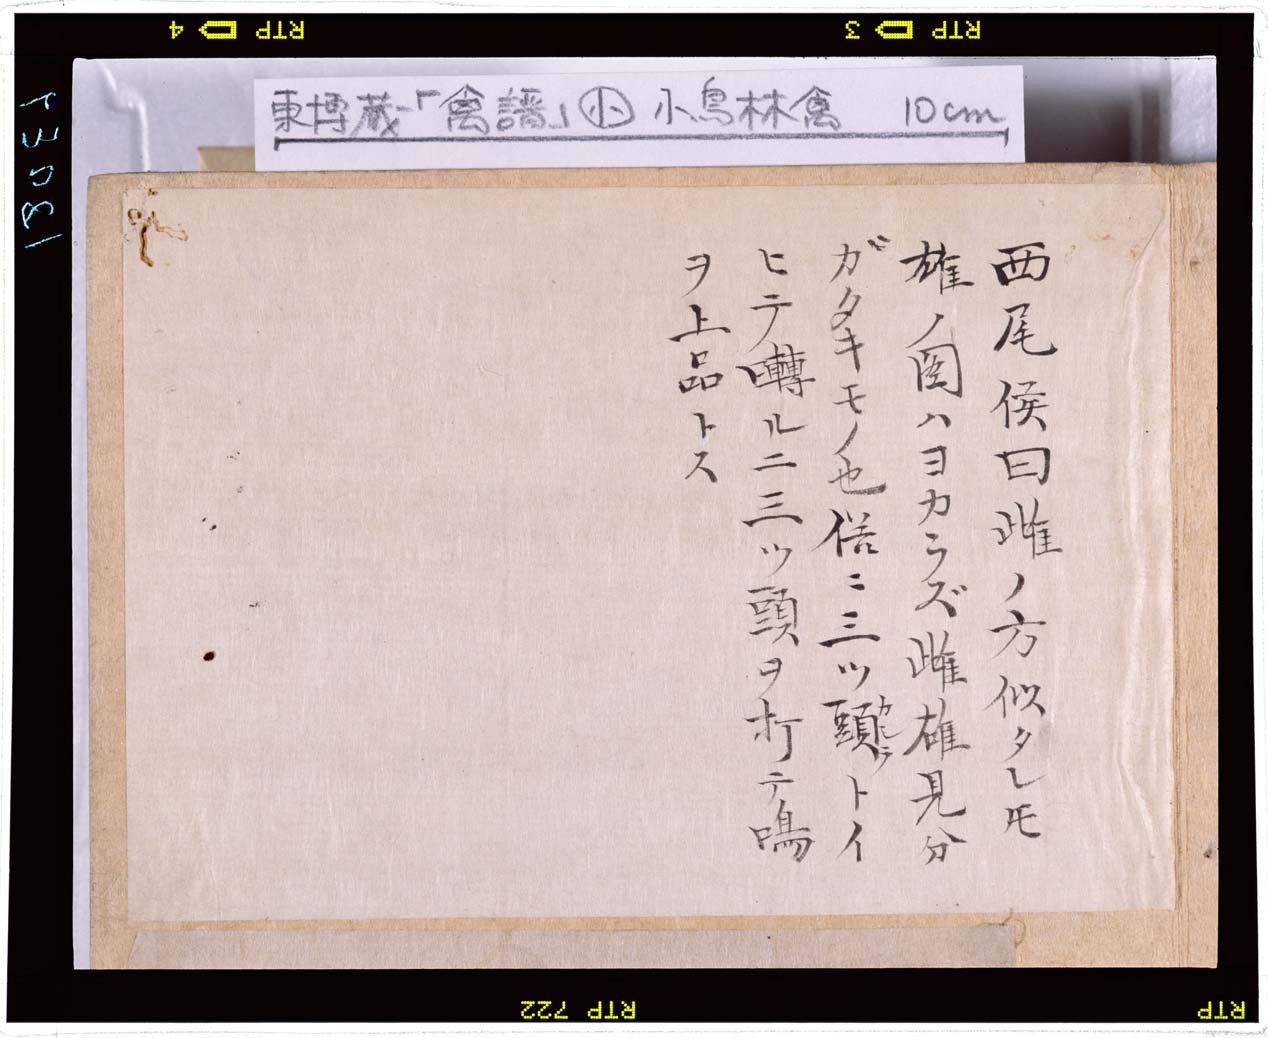 RTP 4
RTP 3
1303ト
東博蔵「禽譜」小 小鳥林禽 10cm
西尾侯曰雌ノ方似タレ𪜈
雄ノ圖ハヨカラズ雌雄見分
ガタキモノ也俗ニ三ツ頭トイ
カシラ
ヒテ囀ルニ三ツ頭ヲ打テ鳴
ヲ上品トス
RTP 722
RTP